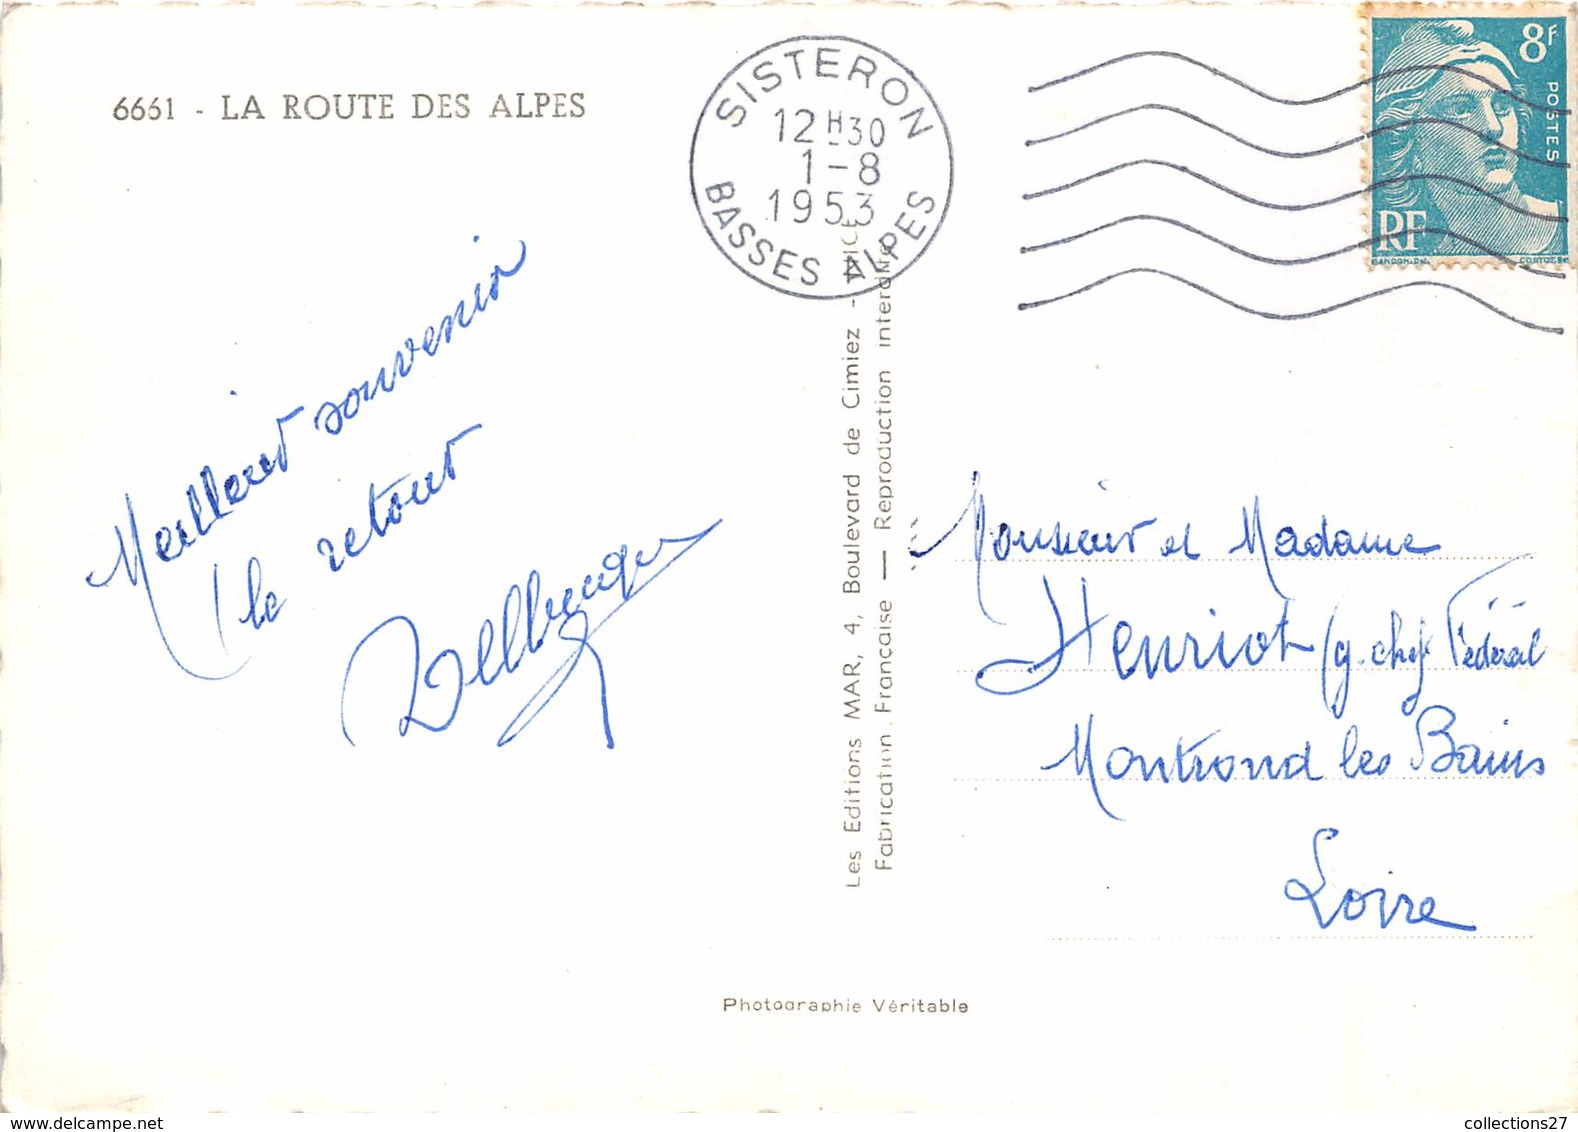 6661 - LA ROUTE DES ALPES
SISTERON
12H30
1-8
1953
BASSES ALPES
8F
POSTES
RF
GANDON
Meilleur souvenir
le retour
Les Editions MAR, 4, Boulevard de Cimiez - NICE
Fabrication Française — Reproduction interdite
Monsieur et Madame
Henriot (g. chef Fédéral
Montrond les Bains
Loire
Photographie Véritable
collections27